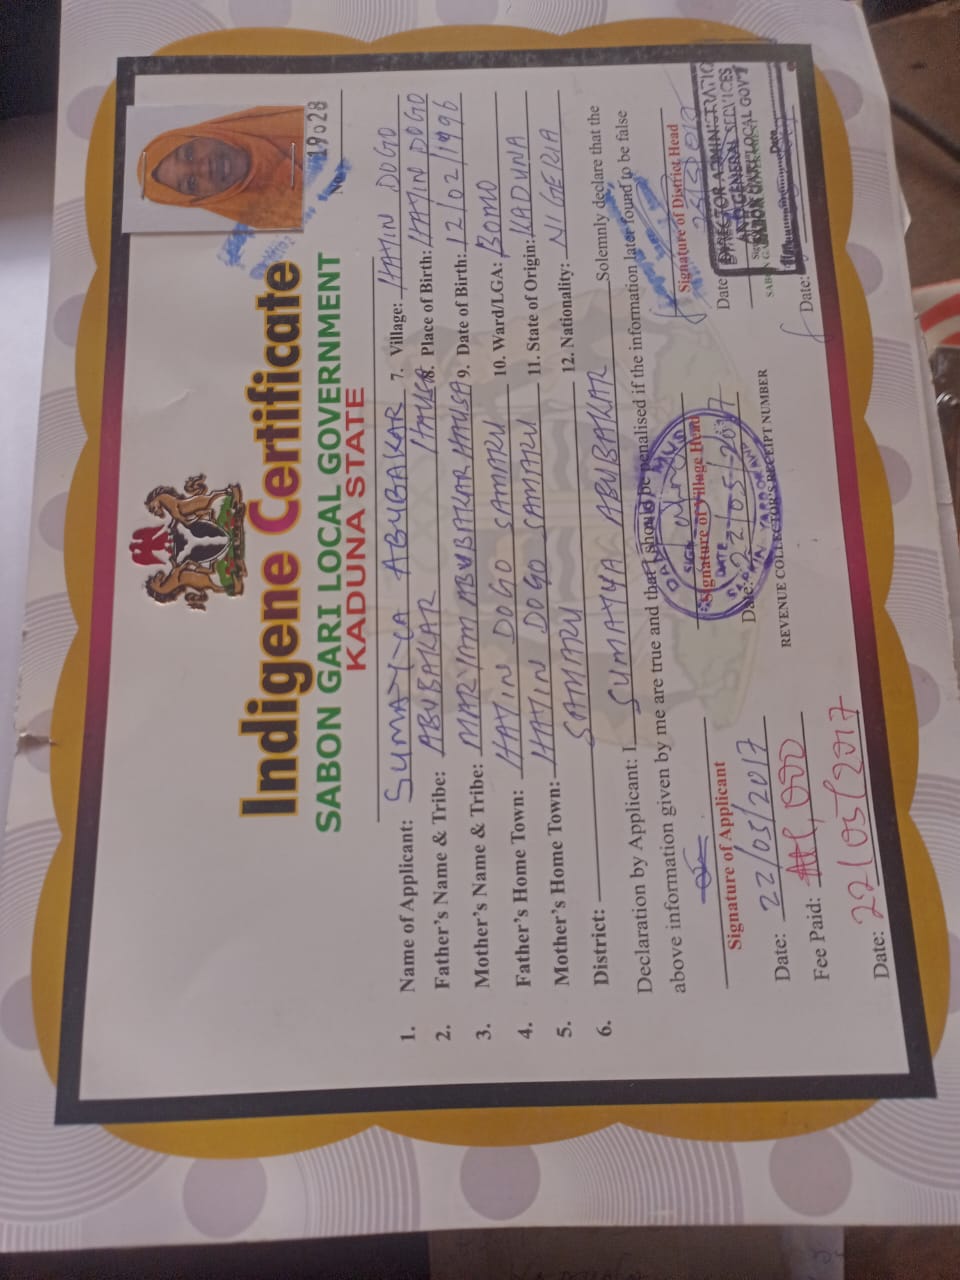 Indigene Certificate
SABON GARI LOCAL GOVERNMENT
KADUNA STATE
No. 19028
1. Name of Applicant: SUMAYYA ABUBAKAR 7. Village: HAYIN DOGO
2. Father's Name & Tribe: ABUBAKAR HAUSA 8. Place of Birth: HAYIN DOGO
3. Mother's Name & Tribe: MARYAM ABUBAKAR HAUSA 9. Date of Birth: 12/02/1996
4. Father's Home Town: HAYIN DOGO SAMARU 10. Ward/LGA: BOMO
5. Mother's Home Town: HAYIN DOGO SAMARU 11. State of Origin: KADUNA
6. District: SAMARU 12. Nationality: NIGERIA
Declaration by Applicant: I SUMAYYA ABUBAKAR Solemnly declare that the
above information given by me are true and that I should be penalised if the information later found to be false
Signature of Applicant Signature of Village Head Signature of District Head
Date: 22/05/2017 Date: 22/05/2017 Date
DIRECTOR ADMINISTRATION
AND GENERAL SERVICES
SABON GARI LOCAL GOVT
Fee Paid: REVENUE COLLECTOR'S RECEIPT NUMBER Date:
Date: 22/05/2017